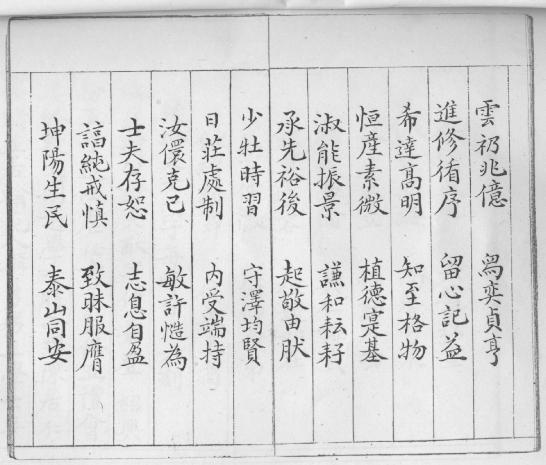 雲礽兆億 舄奕貞亨
進修循序 留心記益
希達高明 知至格物
恒產素微 植德寔基
淑能振景 謙和耘耔
承先裕後 起敬由肰
少壯時習 守澤均賢
日莊處制 內受端持
汝儇克已 敏許慥為
士夫存恕 志息自盈
譆純戒慎 致昧服膺
坤陽生民 泰山同安